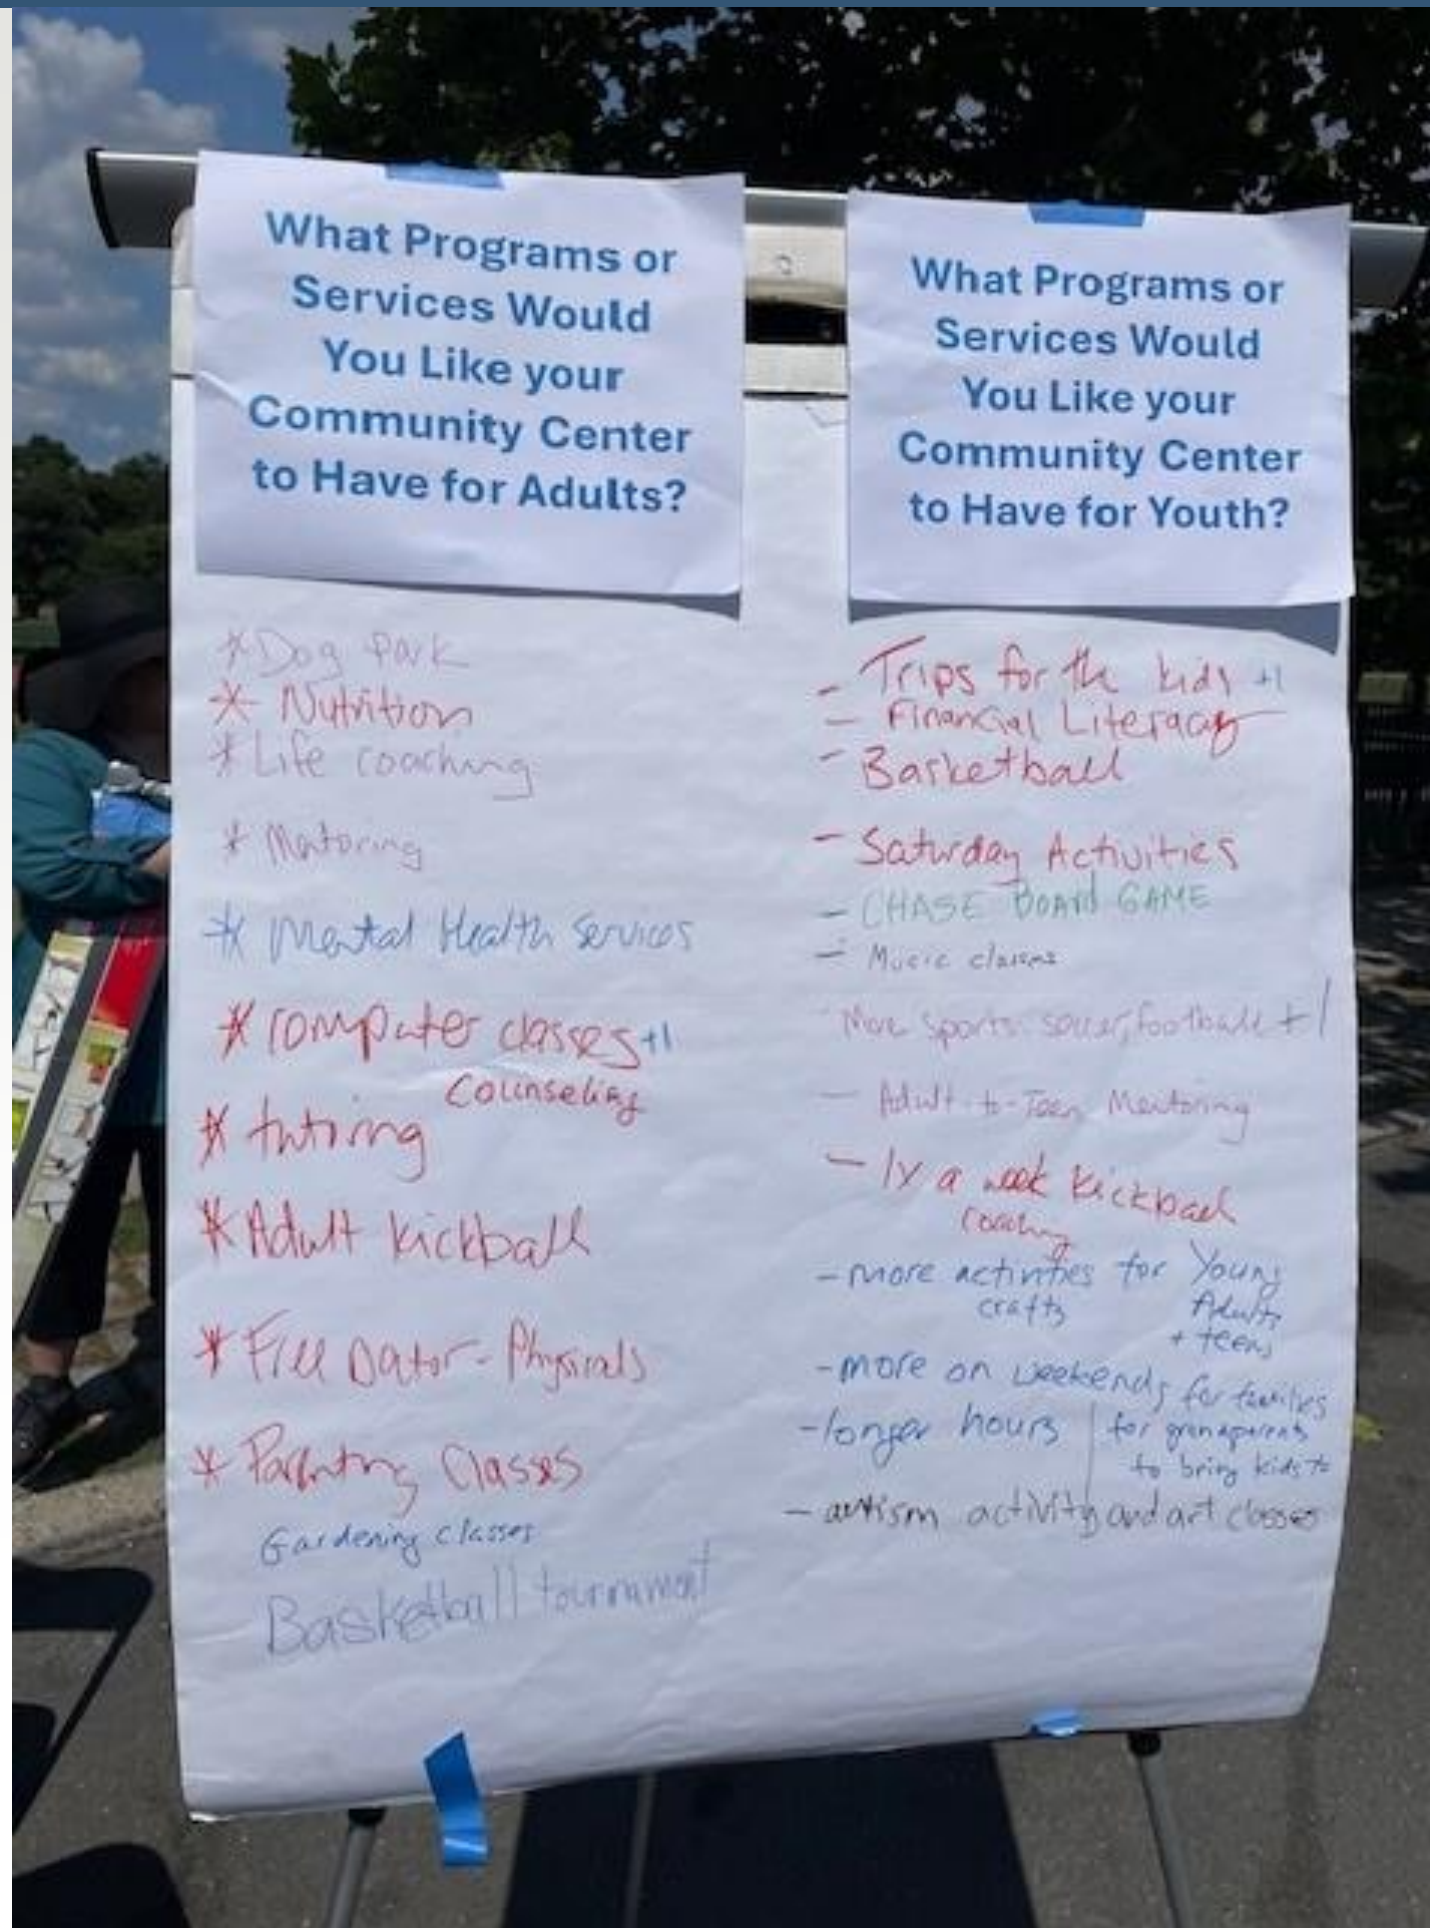 What Programs or
Services Would
You Like your
Community Center
to Have for Adults?
*Dog Park
* Nutrition
* Life coaching
* Matoring
* Mental Health Services
* computer classes +1
Counseling
* tutoring
* Adult kickball
* Free Dator - Physicals
* Parenting Classes
Gardening classes
Basketball tournament
What Programs or
Services Would
You Like your
Community Center
to Have for Youth?
- Trips for the kids +1
- Financial Literacy
- Basketball
- Saturday Activities
- CHASE BOARD GAME
- Music classes
More sports: soccer, football +1
- Adult-to-Teen Mentoring
- 1x a week kickball
coaching
- more activities for Young
crafts Adults
+ teens
- more on weekends for families
- longer hours | for granaparents
to bring kids to
- autism activity and art classes